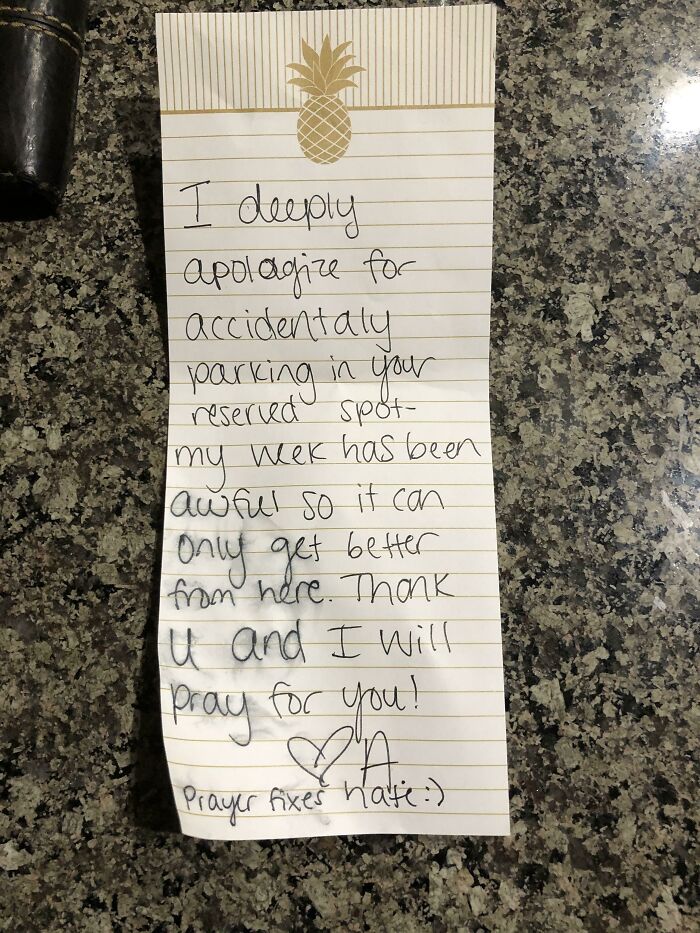 I deeply
apologize for
accidentaly
parking in your
reserved spot-
my week has been
awful so it can
only get better
from here. Thank
u and I will
pray for you!
♡ A
Prayer fixes hate :)